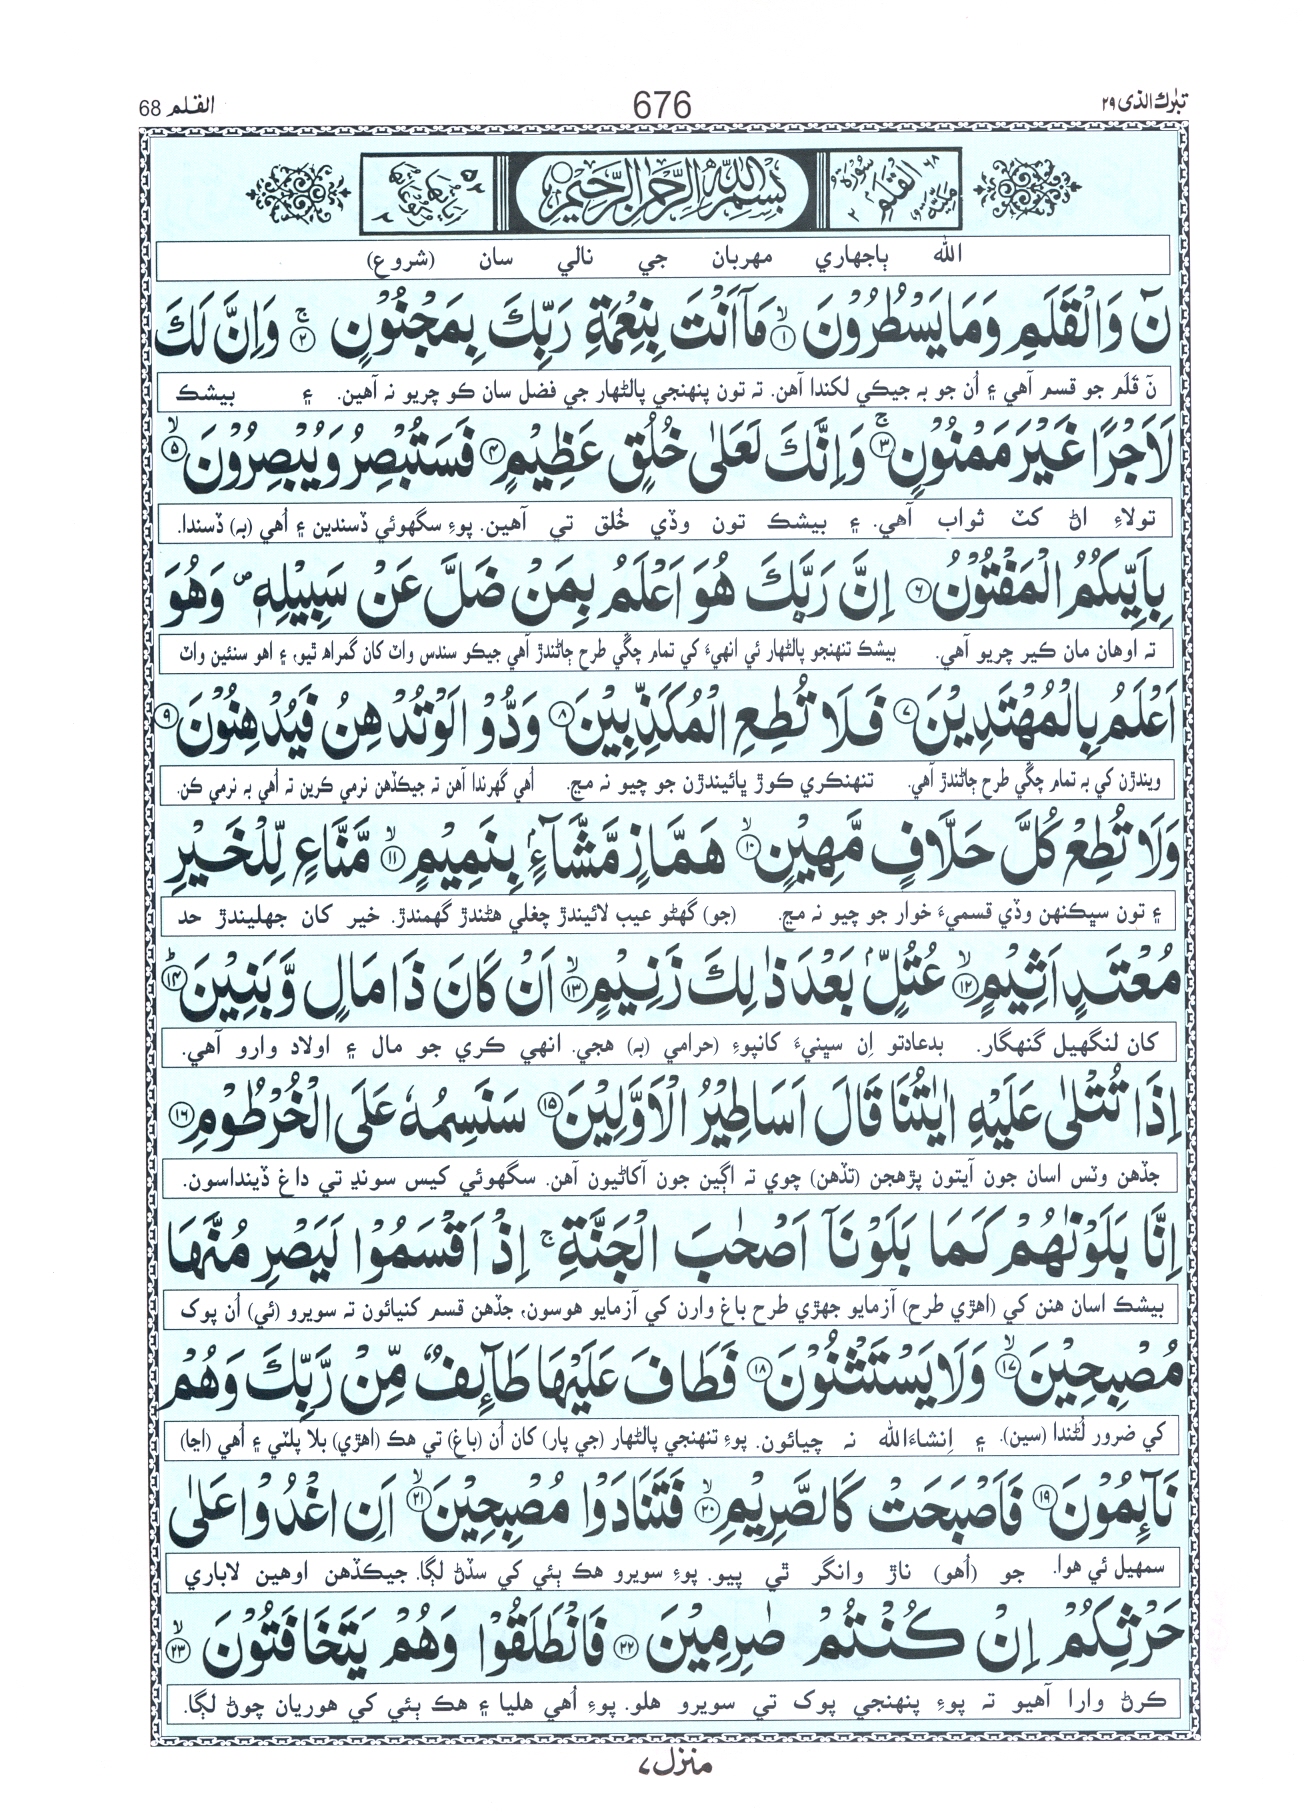 تبٰرك الذى ٢٩ 676 القلم 68
٦٨ سُوْرَةُ الْقَلَمِ مَكِّيَّةٌ ٢ بِسْمِ اللّٰهِ الرَّحْمٰنِ الرَّحِيْمِ اٰيَاتُهَا ٥٢ رُكُوْعَاتُهَا ٢
الله ٻاجهاري مهربان جي نالي سان (شروع)
نٓ وَالْقَلَمِ وَمَا يَسْطُرُوْنَ ۙ﴿۱﴾ مَاۤ اَنْتَ بِنِعْمَةِ رَبِّكَ بِمَجْنُوْنٍ ۚ﴿۲﴾ وَاِنَّ لَكَ
نٓ قَلَم جو قسم آهي ۽ اُن جو به جيڪي لکندا آهن. ته تون پنهنجي پالڻهار جي فضل سان ڪو چريو نہ آهين. ۽ بيشڪ
لَاَجْرًا غَيْرَ مَمْنُوْنٍ ۚ﴿۳﴾ وَاِنَّكَ لَعَلٰى خُلُقٍ عَظِيْمٍ ﴿۴﴾ فَسَتُبْصِرُ وَيُبْصِرُوْنَ ۙ﴿۵﴾
تولاءِ اڻ کٽ ثواب آهي. ۽ بيشڪ تون وڏي خُلق تي آهين. پوءِ سگهوئي ڏسندين ۽ اُهي (بہ) ڏسندا.
بِاَيِّىكُمُ الْمَفْتُوْنُ ﴿۶﴾ اِنَّ رَبَّكَ هُوَ اَعْلَمُ بِمَنْ ضَلَّ عَنْ سَبِيْلِهٖ ۪ وَهُوَ
تہ اوهان مان ڪير چريو آهي. بيشڪ تنهنجو پالڻهار ئي انهيءَ کي تمام چڱي طرح ڄاڻندڙ آهي جيڪو سندس واٽ کان گمراهہ ٿيو، ۽ اهو سنئين واٽ
اَعْلَمُ بِالْمُهْتَدِيْنَ ﴿۷﴾ فَلَا تُطِعِ الْمُكَذِّبِيْنَ ﴿۸﴾ وَدُّوْا لَوْ تُدْهِنُ فَيُدْهِنُوْنَ ﴿۹﴾
ويندڙن کي بہ تمام چڱي طرح ڄاڻندڙ آهي. تنهنڪري ڪوڙ ڀائيندڙن جو چيو نہ مڃ. اُهي گهرندا آهن تہ جيڪڏهن نرمي ڪرين تہ اُهي بہ نرمي ڪن.
وَلَا تُطِعْ كُلَّ حَلَّافٍ مَّهِيْنٍ ۙ﴿۱۰﴾ هَمَّازٍ مَّشَّآءٍۭ بِنَمِيْمٍ ۙ﴿۱۱﴾ مَّنَّاعٍ لِّلْخَيْرِ
۽ تون سڀڪنهن وڏي قسميءَ خوار جو چيو نہ مڃ. (جو) گهڻو عيب لائيندڙ چغلي هڻندڙ گهمندڙ. خير کان جهليندڙ حد
مُعْتَدٍ اَثِيْمٍ ۙ﴿۱۲﴾ عُتُلٍّۭ بَعْدَ ذٰلِكَ زَنِيْمٍ ۙ﴿۱۳﴾ اَنْ كَانَ ذَا مَالٍ وَّبَنِيْنَ ؕ﴿۱۴﴾
کان لنگهيل گنهگار. بدعادتو اِن سڀنيءَ کانپوءِ (حرامي (بہ) هجي. انهي ڪري جو مال ۽ اولاد وارو آهي.
اِذَا تُتْلٰى عَلَيْهِ اٰيٰتُنَا قَالَ اَسَاطِيْرُ الْاَوَّلِيْنَ ﴿۱۵﴾ سَنَسِمُهٗ عَلَى الْخُرْطُوْمِ ﴿۱۶﴾
جڏهن وٽس اسان جون آيتون پڙهجن (تڏهن) چوي تہ اڳين جون آکاڻيون آهن. سگهوئي کيس سونڍ تي داغ ڏينداسون.
اِنَّا بَلَوْنٰهُمْ كَمَا بَلَوْنَاۤ اَصْحٰبَ الْجَنَّةِ ۚ اِذْ اَقْسَمُوْا لَيَصْرِمُنَّهَا
بيشڪ اسان هنن کي (اهڙي طرح) آزمايو جهڙي طرح باغ وارن کي آزمايو هوسون، جڏهن قسم کنيائون تہ سويرو (ئي) اُن پوک
مُصْبِحِيْنَ ۙ﴿۱۷﴾ وَلَا يَسْتَثْنُوْنَ ﴿۱۸﴾ فَطَافَ عَلَيْهَا طَآئِفٌ مِّنْ رَّبِّكَ وَهُمْ
کي ضرور لُڻندا (سين). ۽ اِنشاءَالله نہ چيائون. پوءِ تنهنجي پالڻهار (جي پار) کان اُن (باغ) تي هڪ (اهڙي) بلا پلٽي ۽ اُهي (اڃا)
نَآئِمُوْنَ ﴿۱۹﴾ فَاَصْبَحَتْ كَالصَّرِيْمِ ۙ﴿۲۰﴾ فَتَنَادَوْا مُصْبِحِيْنَ ۙ﴿۲۱﴾ اَنِ اغْدُوْا عَلٰى
سمهيل ئي هوا. جو (اُهو) ناڙ وانگر ٿي پيو. پوءِ سويرو هڪ ٻئي کي سڏڻ لڳا. جيڪڏهن اوهين لاباري
حَرْثِكُمْ اِنْ كُنْتُمْ صٰرِمِيْنَ ﴿۲۲﴾ فَانْطَلَقُوْا وَهُمْ يَتَخَافَتُوْنَ ۙ﴿۲۳﴾
ڪرڻ وارا آهيو تہ پوءِ پنهنجي پوک تي سويرو هلو. پوءِ اُهي هليا ۽ هڪ ٻئي کي هوريان چوڻ لڳا.
منزل ٧